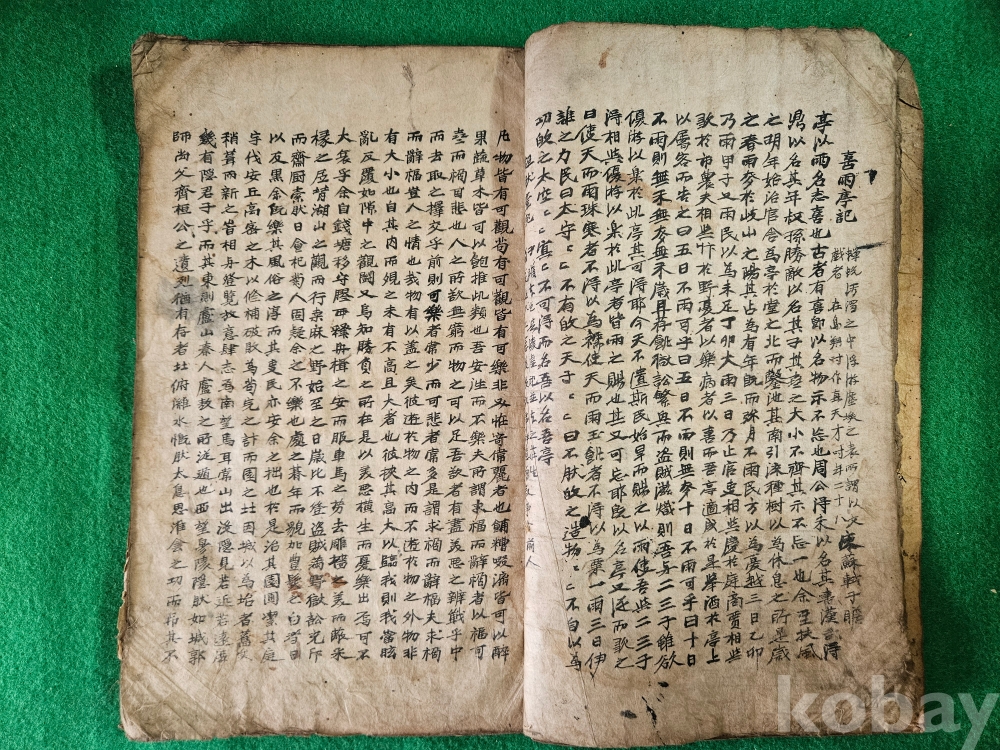 喜雨亭記
宋蘇軾子瞻
亭以雨名志喜也古者有喜卽以名物示不忘也周公淂禾以名其書漢武淂
鼎以名其年叔孫勝敵以名其子其喜之大小不齊其示不忘一也余至扶風
之明年始治官舍為亭於堂之北而鑿池其南引流種樹以為休息之所是歲
之春雨麥於歧山之陽其占為有年旣而弥月不雨民方以為憂越三日乙卯
乃雨甲子又雨民以為未足丁卯大雨三日乃止官吏相与慶於庭商賈相与
歌於市農夫相与忭於野憂者以樂病者以喜而吾亭適成於是擧酒於亭上
以屬客而告之曰五日不雨可乎曰五日不雨則無麥十日不雨可乎曰十日
不雨則無禾無麥無禾歲且荐飢獄訟繁興而盜賊滋熾則吾与二三子雖欲
優游以樂於此亭其可淂耶今天不遺斯民始旱而賜之以雨使吾与二三子
淂相与優游以樂於此亭者皆雨之賜也其又可忘耶旣以名亭又從而歌之
曰使天而雨珠寒者不淂以為襦使天而雨玉飢者不淂以為粟一雨三日伊
誰之力民曰太守〻〻不有故之天子〻〻曰不肰故之造物〻〻不自以為
功故之太空〻〻冥〻不可淂而名吾以名吾亭
凡物皆有可觀苟有可觀皆有可樂非必怪奇偉麗者也餔糟啜漓皆可以醉
果蔬草木皆可以飽推此類也吾安往而不樂夫所謂求福而辭禍者以福可
喜而禍可悲也人之所欲無窮而物之可以足吾欲者有盡美惡之辨戰乎中
而去取之擇交乎前則可樂者常少而可悲者常多是謂求禍而辭福夫求禍
而辭福豈人之情也哉物有以盖之矣彼遊於物之內而不遊於物之外物非
有大小也自其內而覌之未有不高且大者也彼挾其高大以臨我則我常眩
亂反覆如隙中之觀鬪又烏知勝負之所在是以美惡橫生而憂樂出焉可不
大哀乎余自錢塘移守膠西釋舟楫之安而服車馬之勞去雕墻之美而蔽采
椽之居背湖山之觀而行桑麻之野始至之日歲比不登盜賊滿野獄訟充斥
而齋厨索肰日食杞菊人固疑余之不樂也處之朞年而貌加豊髮之白者日
以反黑余旣樂其風俗之淳而其吏民亦安余之拙也於是治其園囿潔其庭
宇伐安丘高密之木以修補破敗為苟完之計而園之北因城以為坮者舊矣
稍葺而新之皆相与登覽放意肆志焉南望馬耳常山出沒隱見若近若遠庶
幾有隱君子乎而其東則盧山秦人盧敖之所從遁也西望穆陵隱肰如城郭
師尙父齊桓公之遺烈猶有存者北俯濰水慨肰太息思淮陰之功而吊其不
kobay